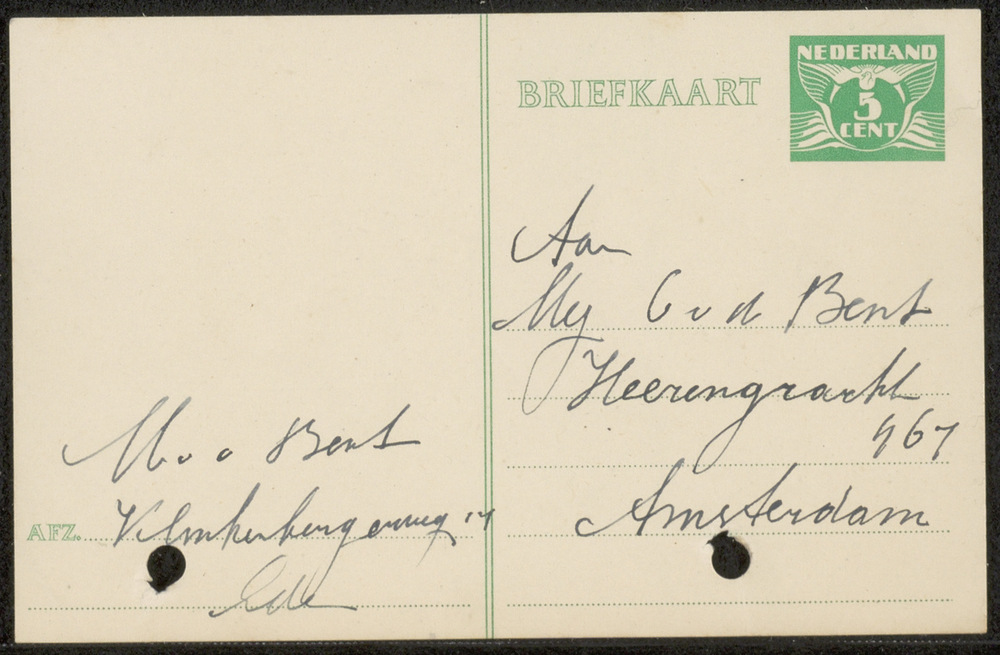 NEDERLAND
5
CENT
BRIEFKAART
Aan
Mej G v d Bent
Heerengracht
467
Amsterdam
M v d Bent
AFZ. Klinkenbergerweg
Ede